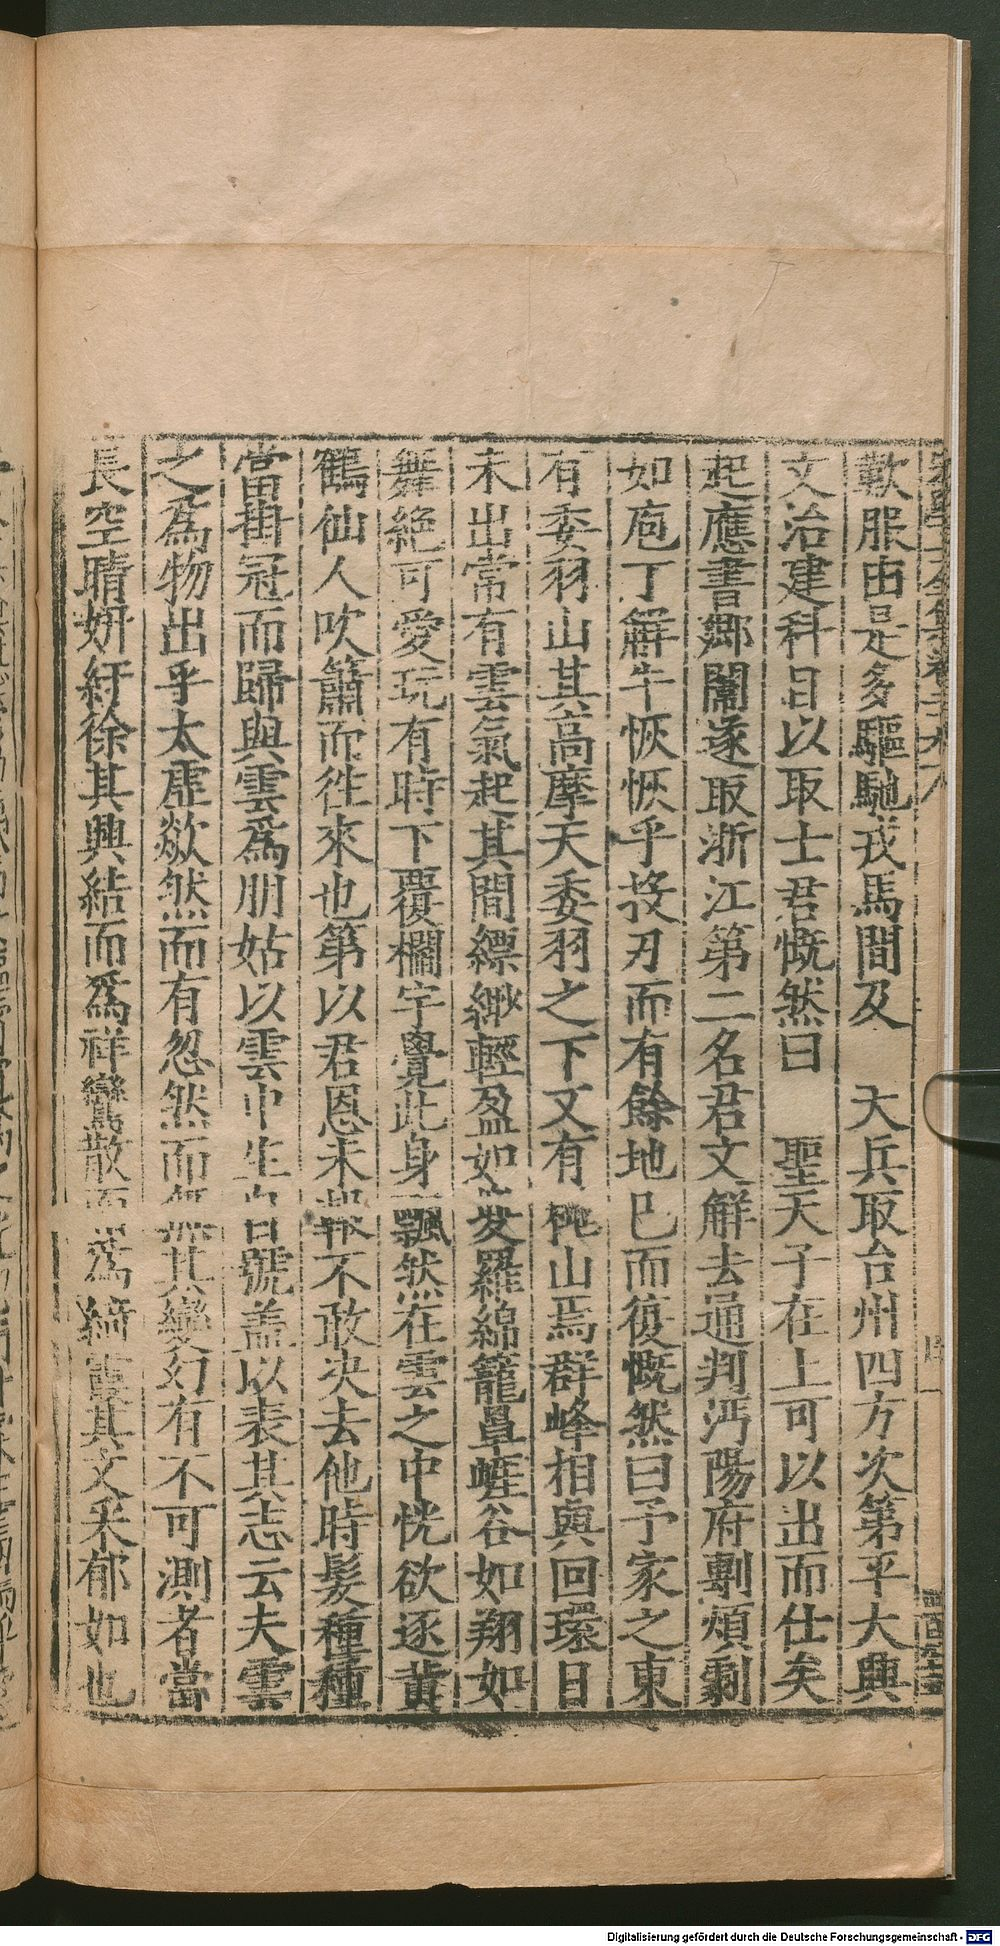 歎服由是多驅馳戎馬間及　大兵取台州四方次第平大興
文治建科目以取士君慨然曰　聖天子在上可以出而仕矣
起應書鄉闈遂取浙江第二名君文解去通判沔陽府剸煩劇
如庖丁解牛恢恢乎投刃而有餘地已而復慨然曰予家之東
有委羽山其高摩天委羽之下又有　山焉群峰相與回環日
未出常有雲氣起其間縹緲輕盈如　羅綿籠罩崖谷如翔如
舞絕可愛玩有時下覆欄宇覺此身飄然在雲之中恍欲逐黃
鶴仙人吹簫而徃來也第以君恩未報不敢决去他時髮種種
當掛冠而歸與雲爲朋姑以雲中生自號盖以表其志云夫雲
之爲物出乎太虛欻然而有忽然而無其變幻有不可測者當
長空晴妍紆徐其興結而爲祥鸞散而爲綺霞其文釆郁如也
Digitalisierung gefördert durch die Deutsche Forschungsgemeinschaft - DFG